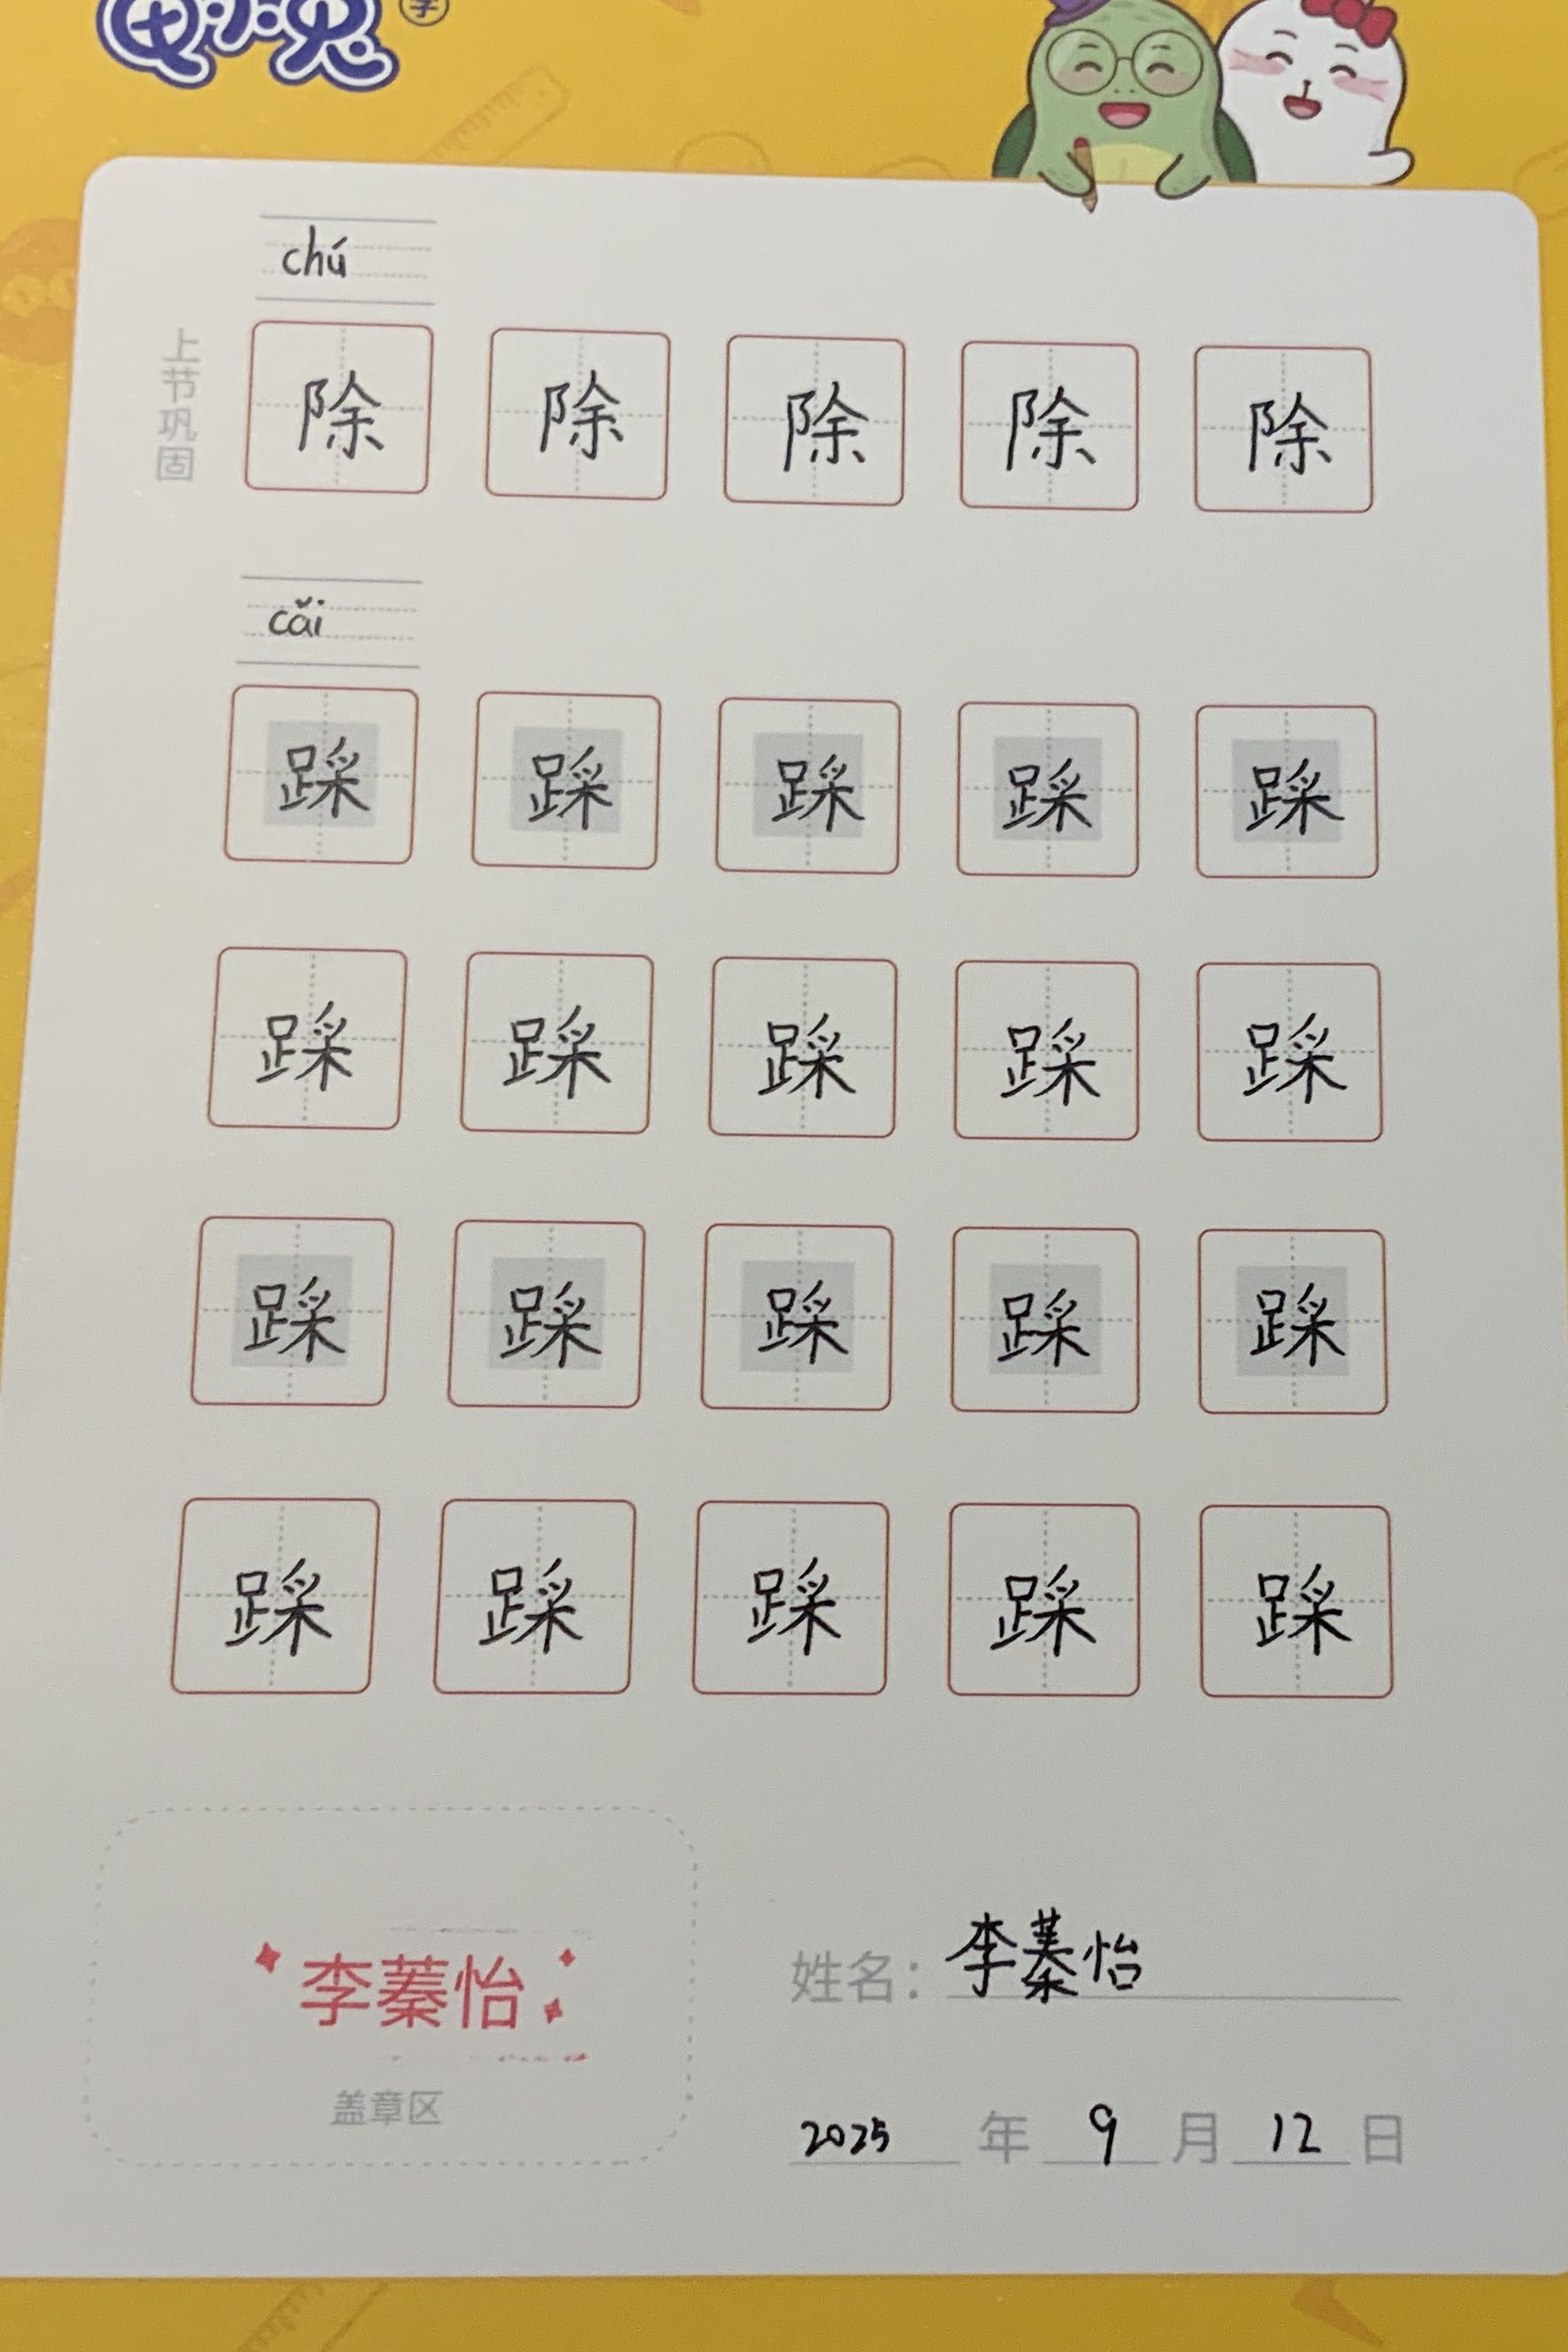 学
chú
上节巩固
除 除 除 除 除
cǎi
踩 踩 踩 踩 踩
踩 踩 踩 踩 踩
踩 踩 踩 踩 踩
踩 踩 踩 踩 踩
李蓁怡
盖章区
姓名：李蓁怡
2025 年 9 月 12 日